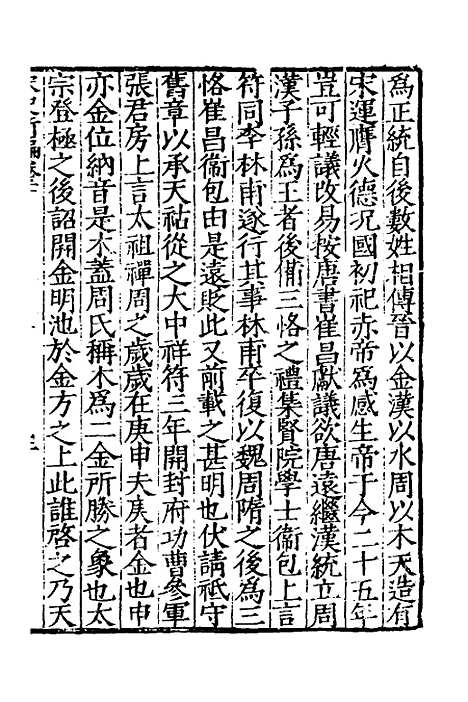 爲正統自後數姓相傳晉以金漢以水周以木天造有
宋運膺火德況國初祀赤帝爲感生帝于今二十五年
豈可輕議改易按唐書崔昌獻議欲唐遠繼漢統立周
漢子孫爲王者後俻三恪之禮集賢院學士衞包上言
符同李林甫遂行其事林甫卒復以魏周隋之後爲三
恪崔昌衞包由是遠貶此又前載之甚明也伏請祗守
舊章以承天祜從之大中祥符三年開封府功曹參軍
張君房上言太祖禪周之歲歲在庚申夫庚者金也申
亦金位納音是木蓋周氏稱木爲二金所勝之象也太
宗登極之後詔開金明池於金方之上此誰啓之乃天